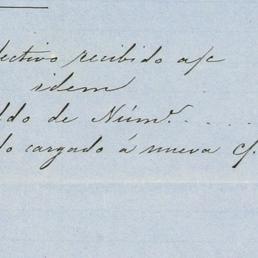 fectivo recibido a/c
idem
ldo de Núm.ˢ . . . .
do cargado á nueva c/.